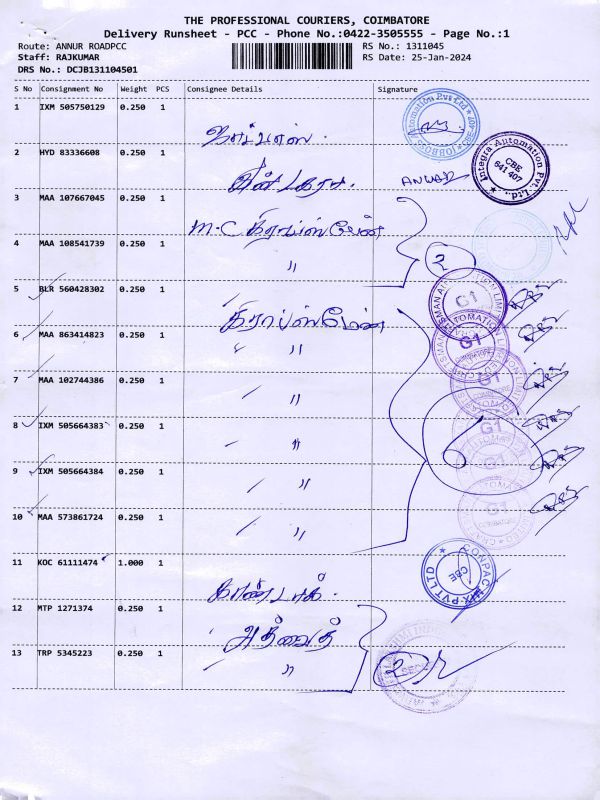 THE PROFESSIONAL COURIERS, COIMBATORE
Delivery Runsheet - PCC - Phone No.:0422-3505555 - Page No.:1
Route: ANNUR ROADPCC
RS No.: 1311045
Staff: RAJKUMAR
RS Date: 25-Jan-2024
DRS No.: DCJB131104501
S No Consignment No Weight PCS Consignee Details Signature
1 IXM 505750129 0.250 1
2 HYD 83336608 0.250 1
Integra Automation Pvt. Ltd.,
CBE
641 407
ANWAR
3 MAA 107667045 0.250 1
M.C கிராப்ஸ்மேன்
4 MAA 108541739 0.250 1 〃
2
5 BLR 560428302 0.250 1
கிராப்ஸ்மேன்
G1
6 MAA 863414823 0.250 1 〃
G1
7 MAA 102744386 0.250 1 〃
G1
8 IXM 505664383 0.250 1 〃
G1
9 IXM 505664384 0.250 1 〃
G1
10 MAA 573861724 0.250 1 〃
G1
11 KOC 61111474 1.000 1
CONPAC MIX PVT LTD
CBE
12 MTP 1271374 0.250 1
அத்வைத்
13 TRP 5345223 0.250 1 〃
2